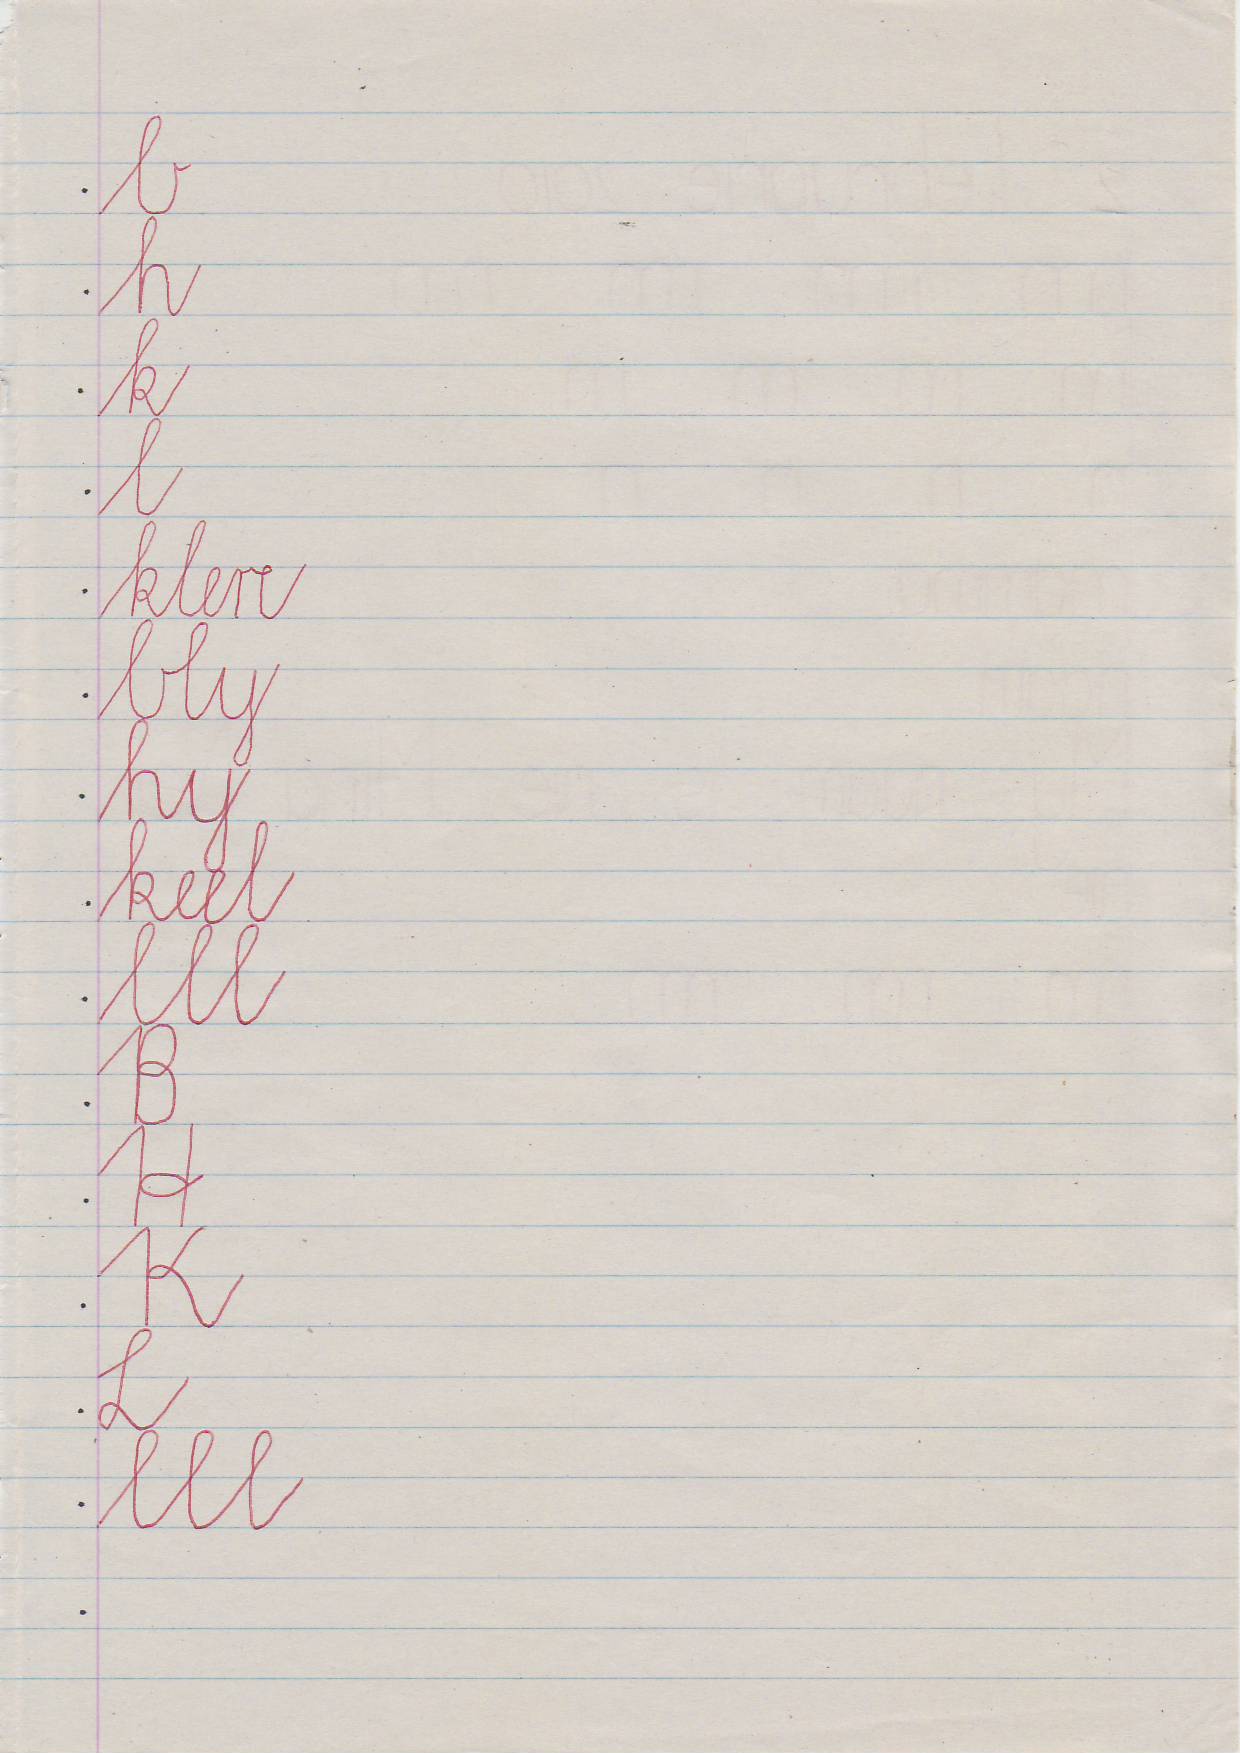 b
h
k
l
klere
bly
hy
keel
lll
B
H
K
L
lll